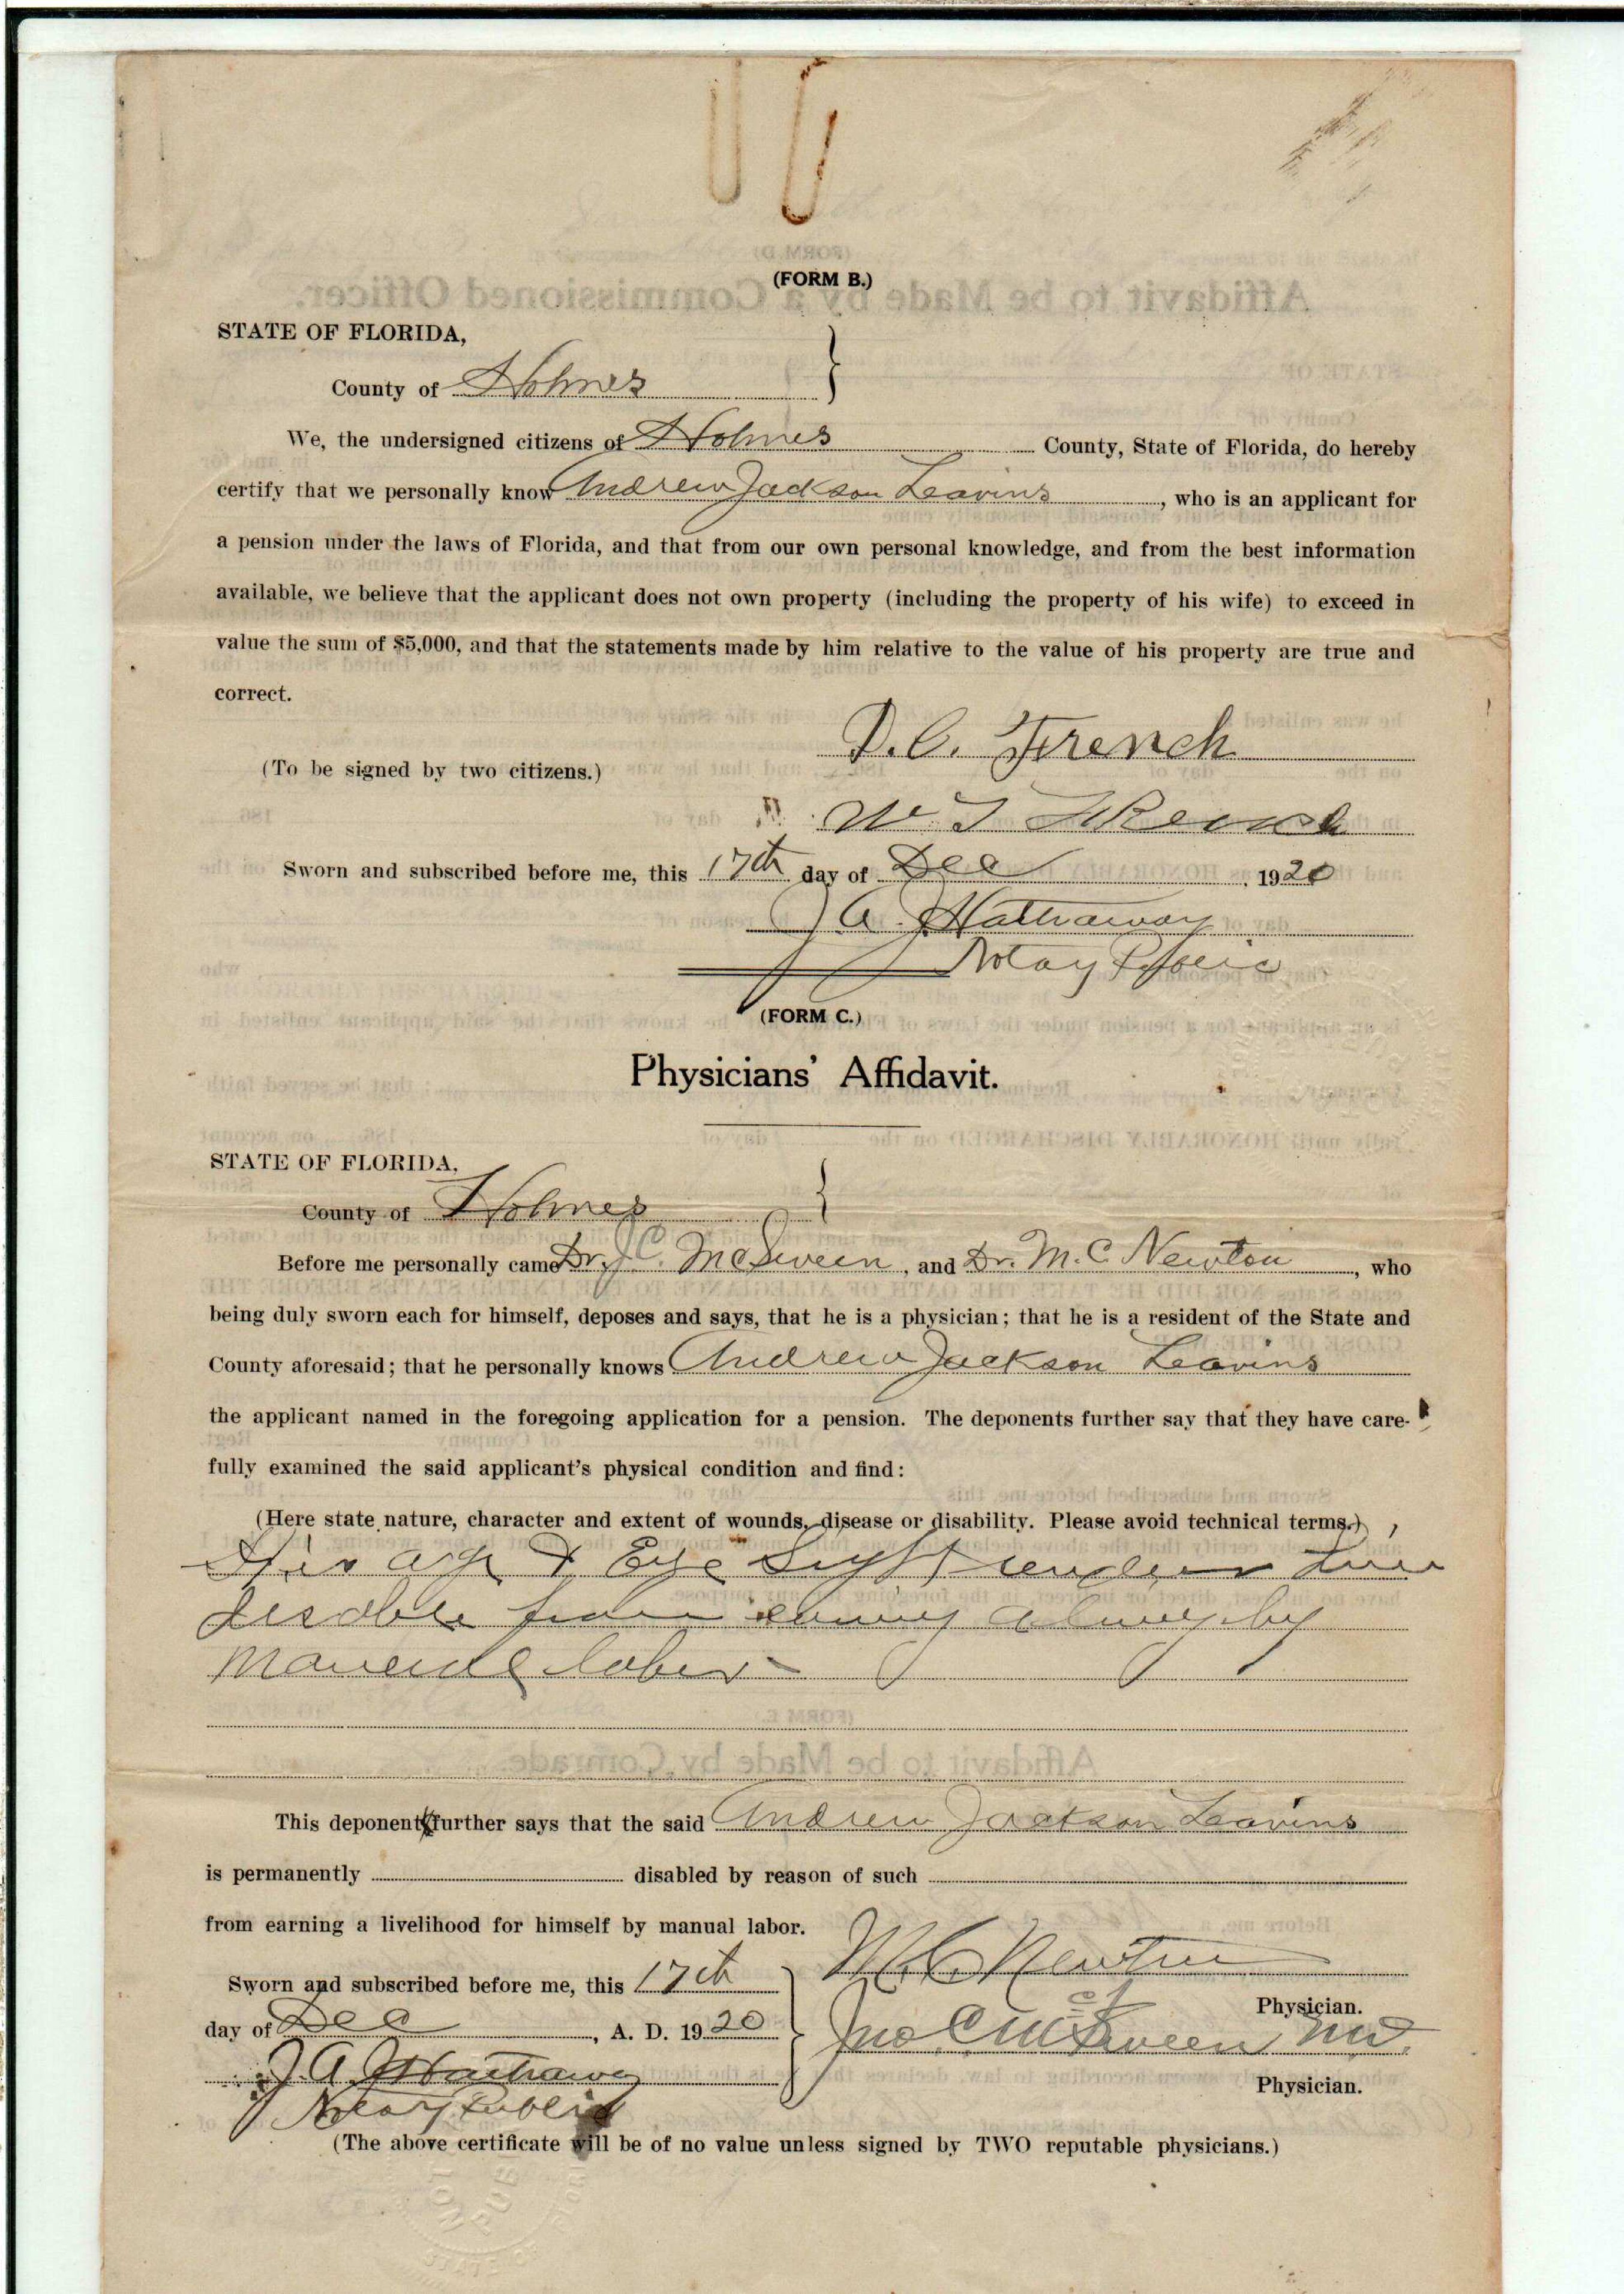 (FORM B.)
STATE OF FLORIDA,
County of Holmes
We, the undersigned citizens of Holmes County, State of Florida, do hereby
certify that we personally know Andrew Jackson Leavins, who is an applicant for
a pension under the laws of Florida, and that from our own personal knowledge, and from the best information
available, we believe that the applicant does not own property (including the property of his wife) to exceed in
value the sum of $5,000, and that the statements made by him relative to the value of his property are true and
correct.
D. C. French
(To be signed by two citizens.)
W T
Sworn and subscribed before me, this 17th day of Dec, 1920
J A. Hathaway
Notay Public
(FORM C.)
Physicians' Affidavit.
STATE OF FLORIDA,
County of Holmes
Before me personally came Dr. J C. McSween, and Dr. M. C Newton, who
being duly sworn each for himself, deposes and says, that he is a physician; that he is a resident of the State and
County aforesaid; that he personally knows Andrew Jackson Leavins
the applicant named in the foregoing application for a pension. The deponents further say that they have care-
fully examined the said applicant's physical condition and find:
(Here state nature, character and extent of wounds, disease or disability. Please avoid technical terms.)
His age & Eye Sight renders him
from by
labor
This deponent further says that the said Andrew Jackson Leavins
is permanently disabled by reason of such
from earning a livelihood for himself by manual labor.
M. C. Newton
Sworn and subscribed before me, this 17th
Physician.
day of Dec, A. D. 1920
Jno. C. McSween MD.
J. A. Hathaway
Physician.
Notary Public
(The above certificate will be of no value unless signed by TWO reputable physicians.)